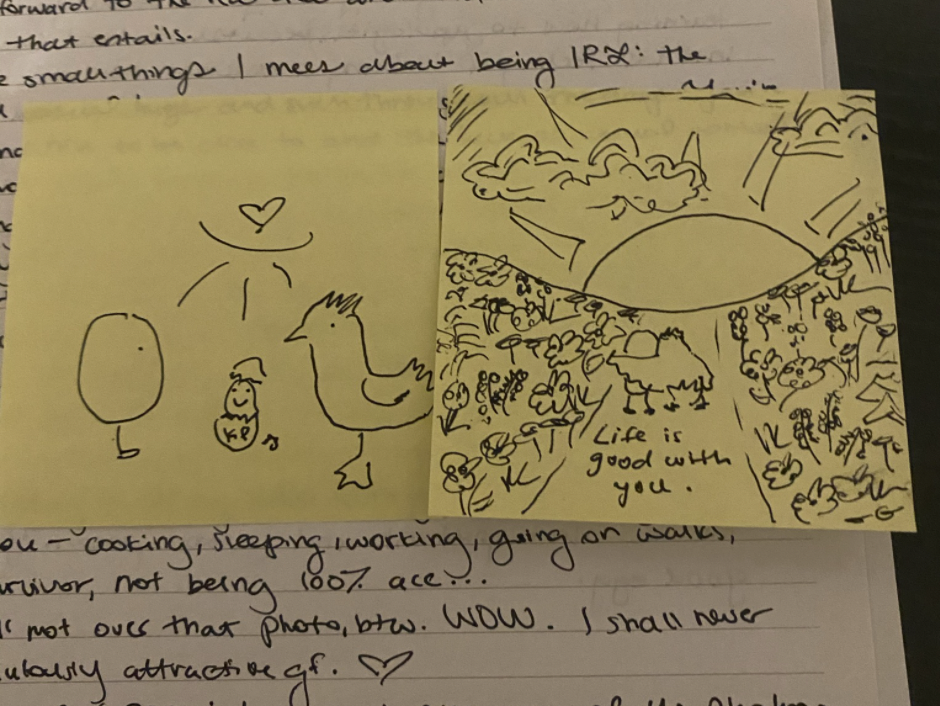 forward to the
that entails.
small things I mees about being IRL: the
KP
Life is
good with
you.
ou – cooking, sleeping, working, going on walks,
urvivor, not being 100% ace...
not over that photo, btw. WOW. I shall never
ulously attractive gf. ♡